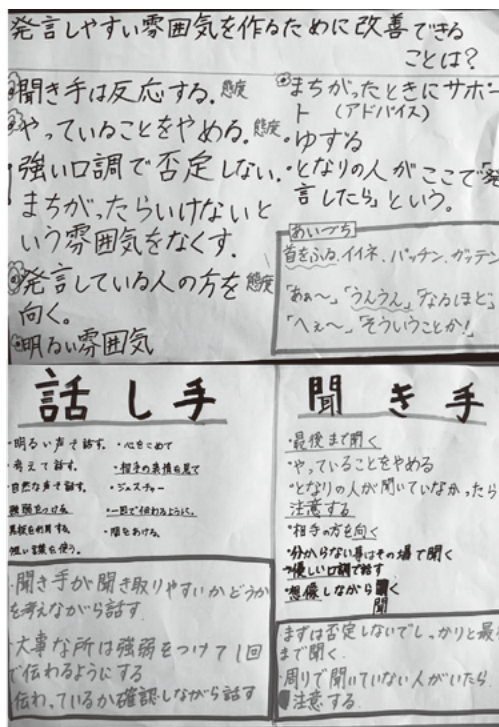 発言しやすい雰囲気を作るために改善できる
ことは?
聞き手は反応する。態度
やっていることをやめる。態度
強い口調で否定しない。
まちがったらいけないと
いう雰囲気をなくす。
発言している人の方を 態度
向く。
明るい雰囲気
まちがったときにサポー
ト (アドバイス)
ゆずる
・となりの人がここで「発
言したら」という。
あいづち
首をふる、イイネ、パッチン、ガッテン
「あぁ〜」「うんうん」「なるほど」
「へぇ〜」「そういうことか!」
話し手
・明るい声で話す。
・考えて話す。
・自然な声で話す。
強弱をつける
黒板を利用する。
短い言葉を使う。
・心をこめて
・相手の表情を見て
・ジェスチャー
・一回で伝わるように。
・間をあける。
・聞き手が聞き取りやすいかどうか
を考えながら話す
・大事な所は強弱をつけて1回
で伝わるようにする
伝わっているか確認しながら話す
聞き手
・最後まで聞く
・やっていることをやめる
・となりの人が聞いていなかったら
注意する
・相手の方を向く
・分からない事はその場で聞く
・優しい口調で話す
・想像しながら聞く
・まずは否定しないでしっかりと最後
まで聞く
・周りで聞いていない人がいたら
注意する